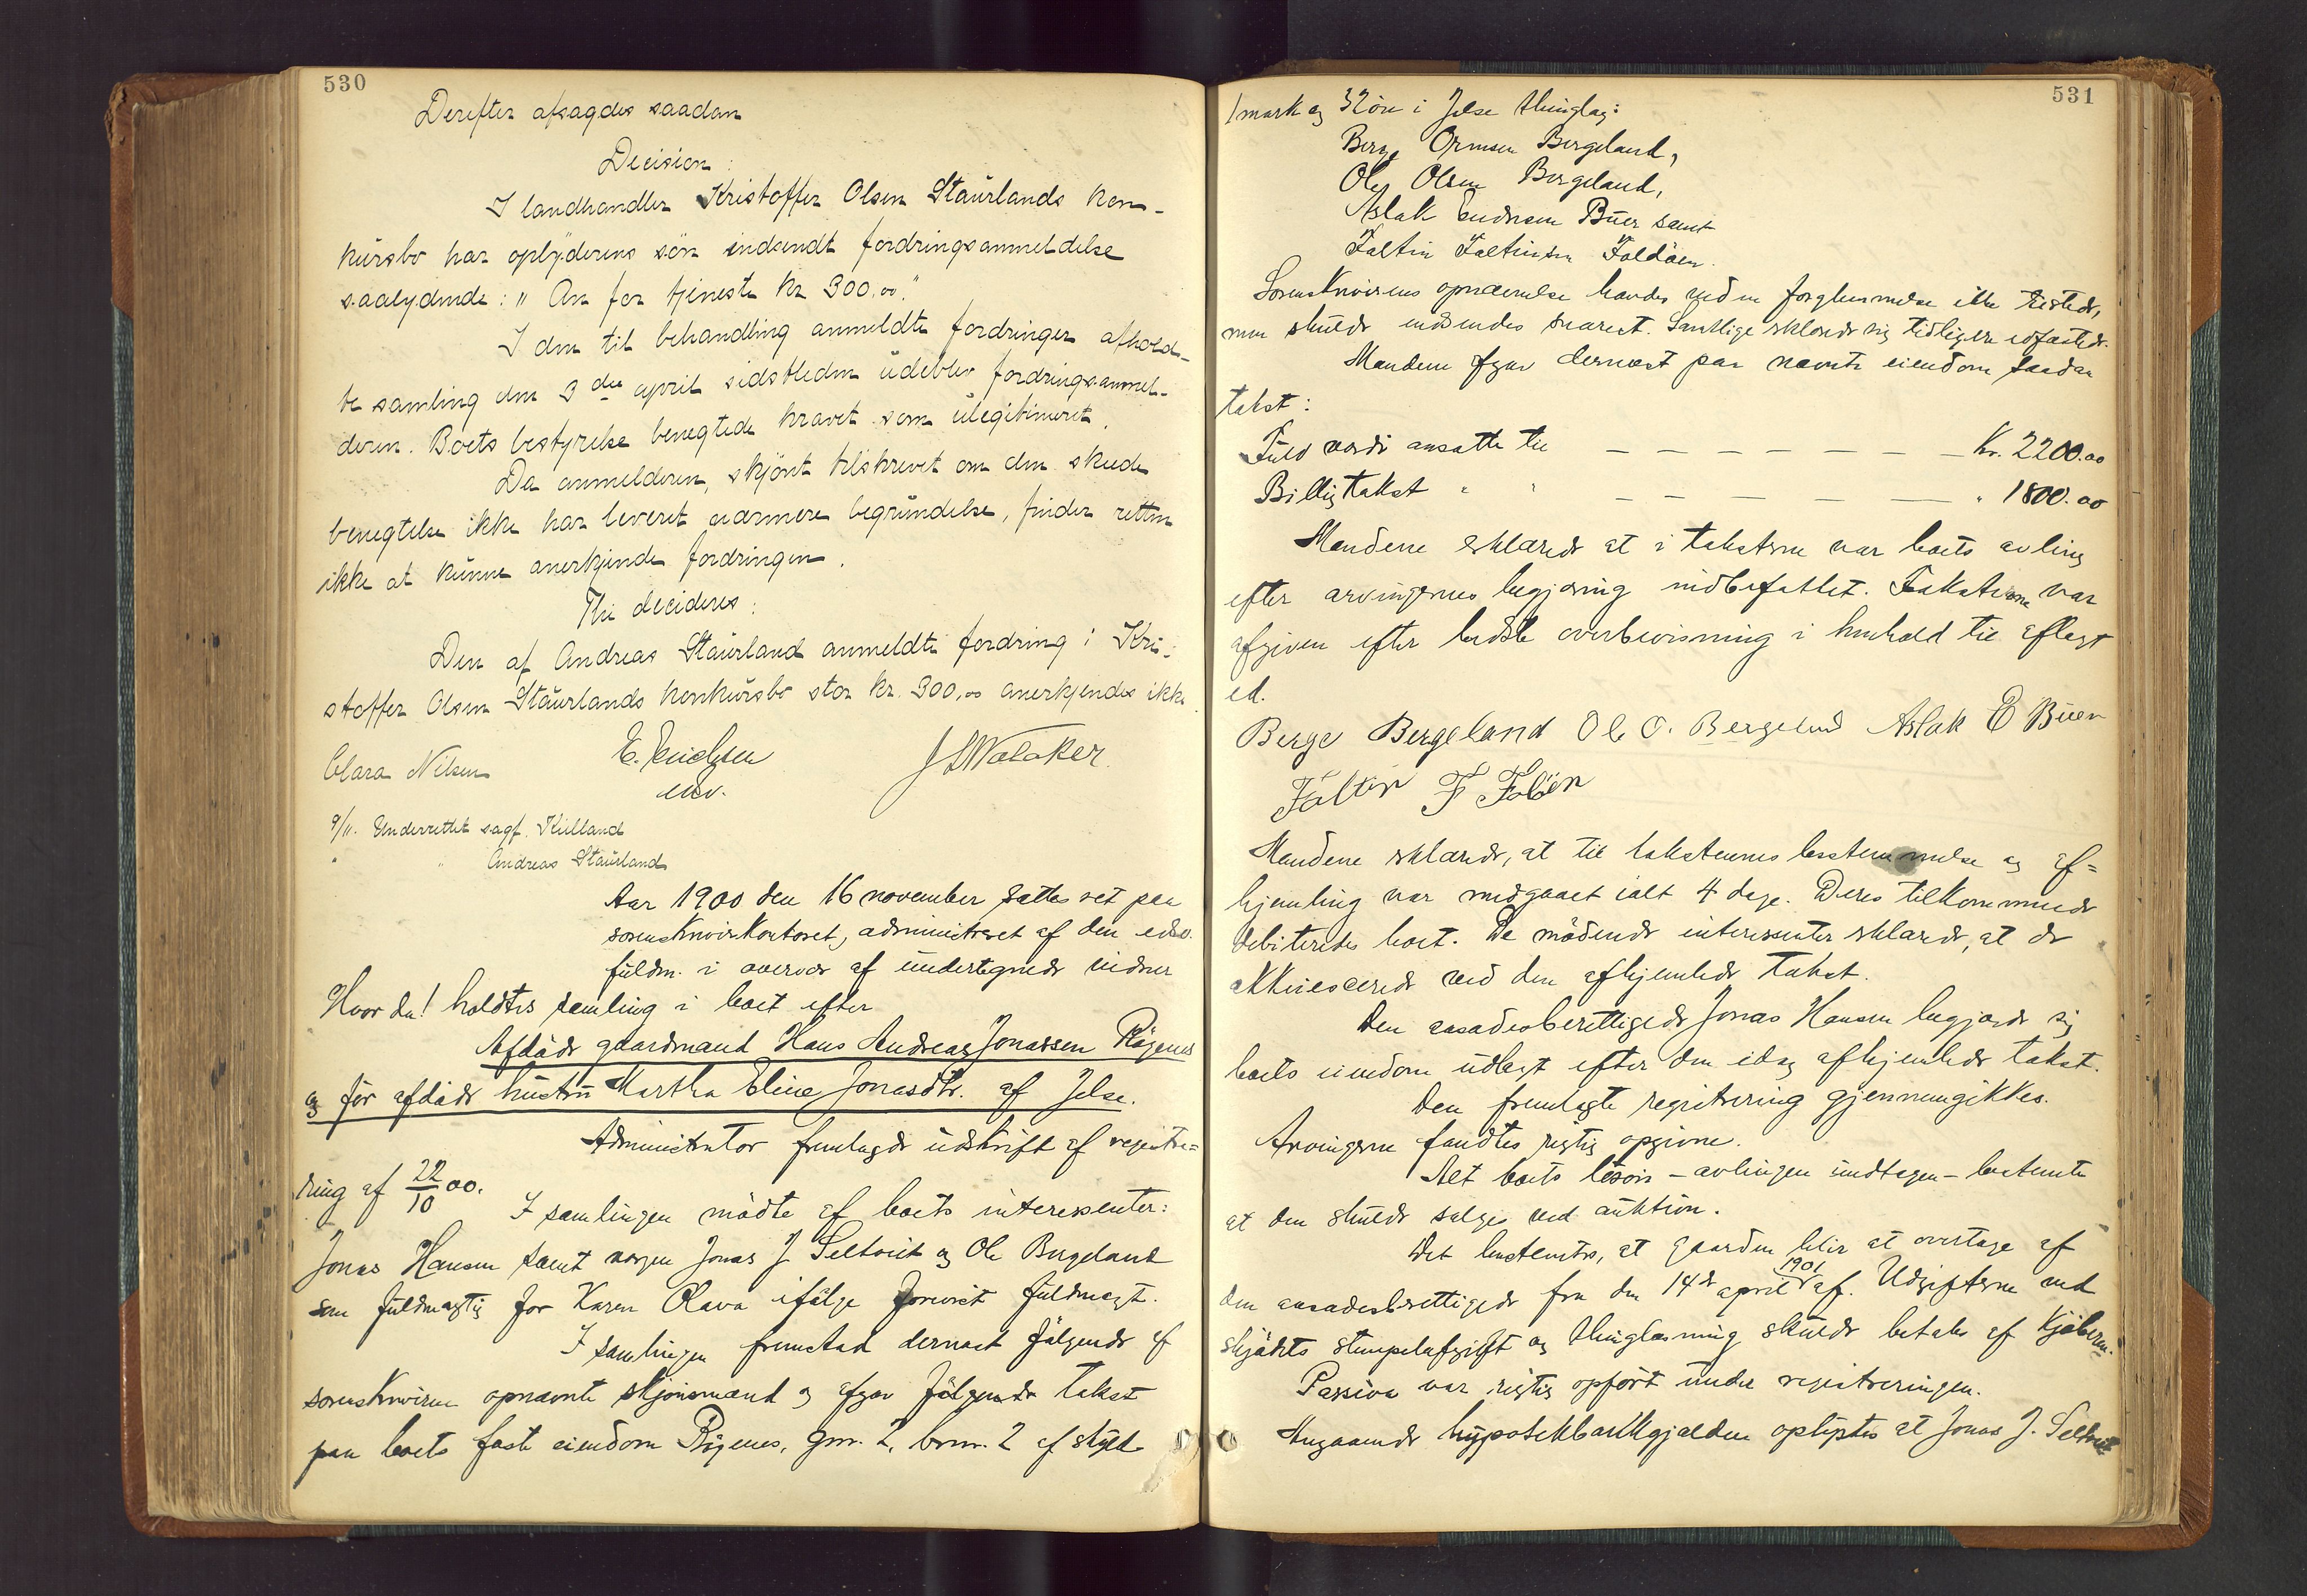 530
Derefter afsagdes saadan
Decision:
I landhandler Kristoffer Olsen Staurlands kon-
kursbo har opbyderens søn indsendt fordringsanmeldelse
saalydende: "An for tjeneste kr 300.00."
I den til behandling anmeldte fordringer afhold-
te samling den 3die april sidstleden udeblev fordringsanmel-
deren. Boets bestyrelse benegtede kravet som ulegitimeret.
Da anmelderen, skjønt tilskrevet om den skede
benegtelse ikke har leveret nærmere begrundelse, finder retten
ikke at kunne anerkjende fordringen.
Thi decideres:
Den af Andreas Staurland anmeldte fordring i Kri-
stoffer Olsen Staurlands konkursbo stor kr. 300.00 anerkjendes ikke.
Clara Nilsen E. Erichsen J L Walaker.
edsv.
9/11. Underrettet sagf. Kielland
" " Andreas Staurland
Aar 1900 den 16 november sattes ret paa
sorenskriverkontoret, administreret af den edsv.
fuldm. i overvær af undertegnede vidner
Hvor da! holdtes samling i boet efter
Afdøde gaardmand Hans Andreas Jonassen Røgenes
og før afdøde hustru Martha Eline Jonasdtr. af Jelse.
Administrator fremlagde udskrift af registre=
ring af 22/10 00.
I samlingen mødte af boets interessenter:
Jonas Hansen samt vergen Jonas J Seltveit og Ole Bergeland
som fuldmægtig for Karen Olava ifølge forevist fuldmagt.
I samlingen fremstod dernæst følgende af
sorenskriveren opnævnte skjønsmænd og afgav følgende takst
paa boets faste eiendom Røgenes, gnr. 2, brnr. 2 af skyld
531
1 mark og 32 øre i Jelse thinglag:
Berge Ormsen Bergeland,
Ole Olsen Bergeland,
Aslak Endresen Buer samt
Faltin Faltinsen Foldøen.
Sorenskriverens opnævnelse havdes ved en forglemmelse ikke tilstede,
men skulde indsendes snarest. Samtlige erklærede sig tidligere edfæstede.
Mændene afgav dernæst paa nævnte eiendom saadan
takst:
Fuld verdi ansatte til — — — — — — — Kr. 2200.00
Billig takst " " — — — — — " 1800.00
Mændene erklærede at i taksterne var boets avling
efter arvingernes begjæring indbefattet. Taksterne var
afgiven efter bedste overbevisning i henhold til aflagt
ed.
Berge Bergeland Ole O. Bergeland Aslak E Buer
Faltin F Foløen
Mændene erklærede, at til taksternes bestemmelse og af=
hjemling var medgaaet ialt 4 dage. Deres tilkommende
debiteredes boet. De mødende interessenter erklærede, at de
akkviescerede ved den afhjemlede takst.
Den aasædesberettigede Jonas Hansen begjærede sig
boets eiendom udlagt efter den idag afhjemlede takst.
Den fremlagte registrering gjennemgikkes.
Arvingerne fandtes rigtig opgivne.
Alt boets løsøre – avlingen undtagen – bestemtes
at den skulde sælges ved auktion.
Det bestemtes, at gaarden blir at overtage af
den aasædesberettigede fra den 14de april 1901 af. Udgifterne ved
skjødets stempelafgift og thinglæsning skulde betales af kjøberen.
Passiva var rigtig opført under registreringen.
Angaaende hypotekbankgjælden oplystes at Jonas J. Seltveit